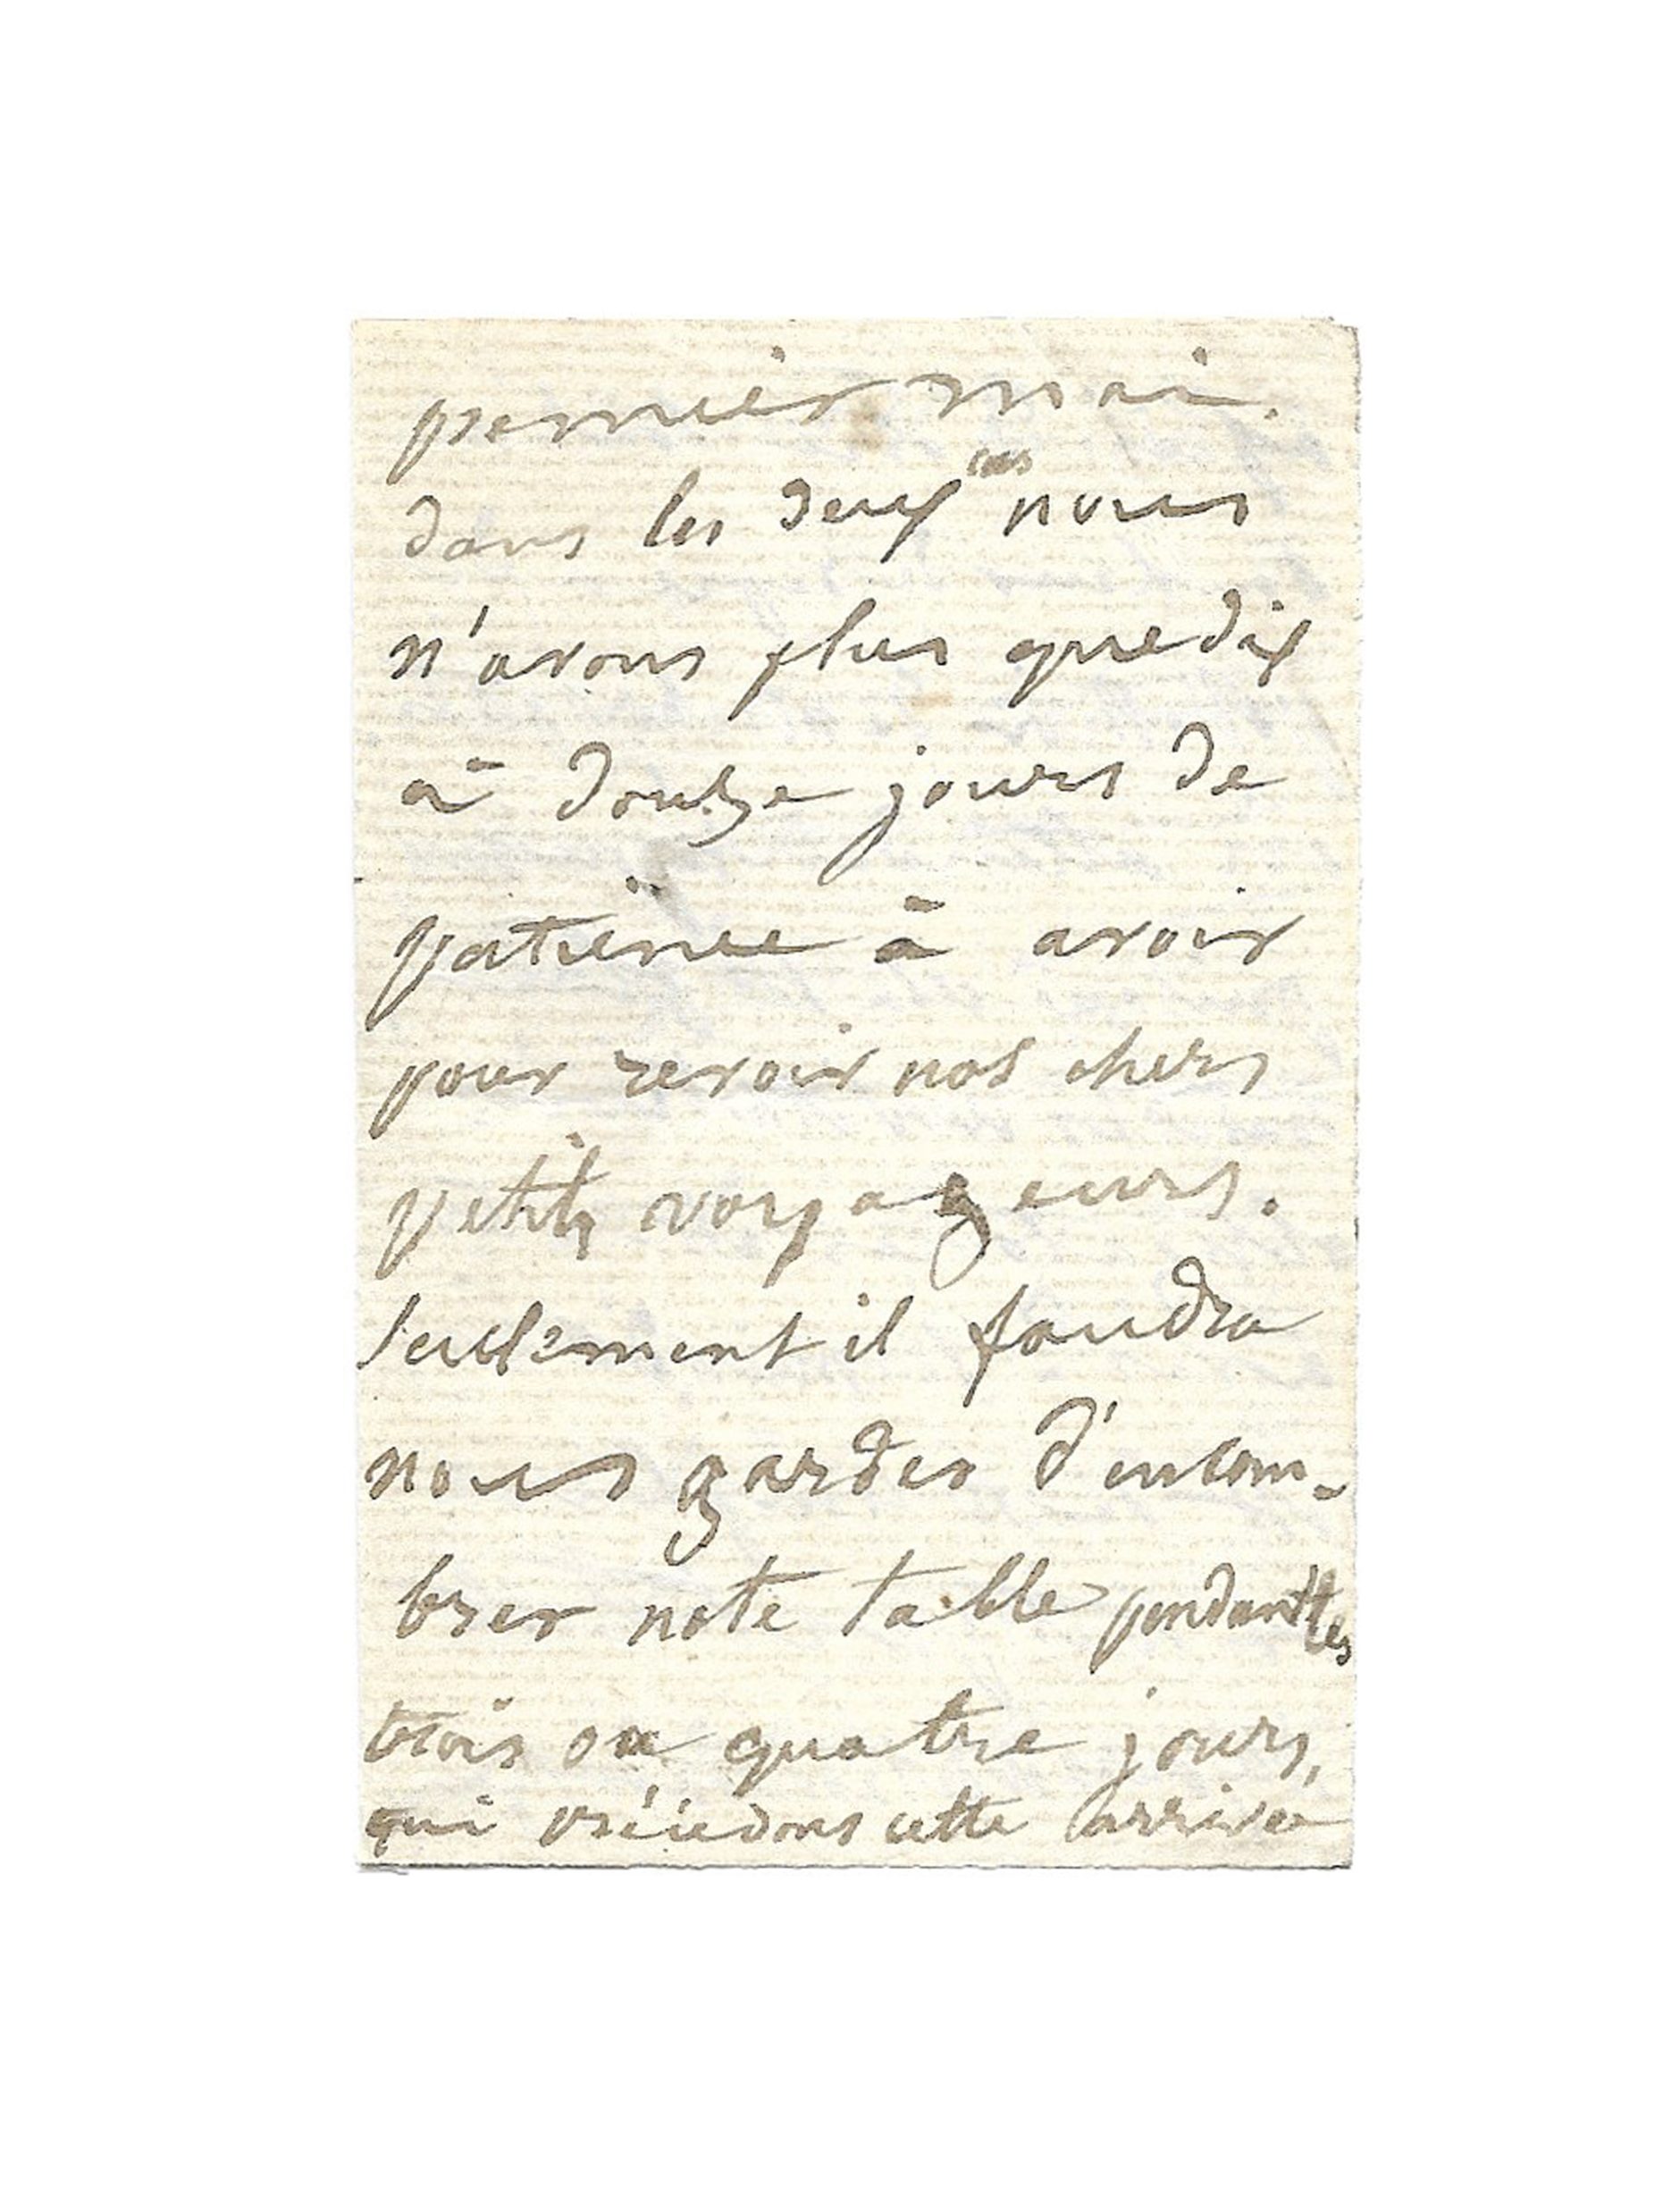 premier mai.
dans les deux cas nous
n'avons plus que dix
à douze jours de
patience à avoir
pour revoir nos chers
petits voyageurs.
seulement il faudra
nous garder d'encom-
brer note table pendant les
trois ou quatre jours,
qui cette arrivée